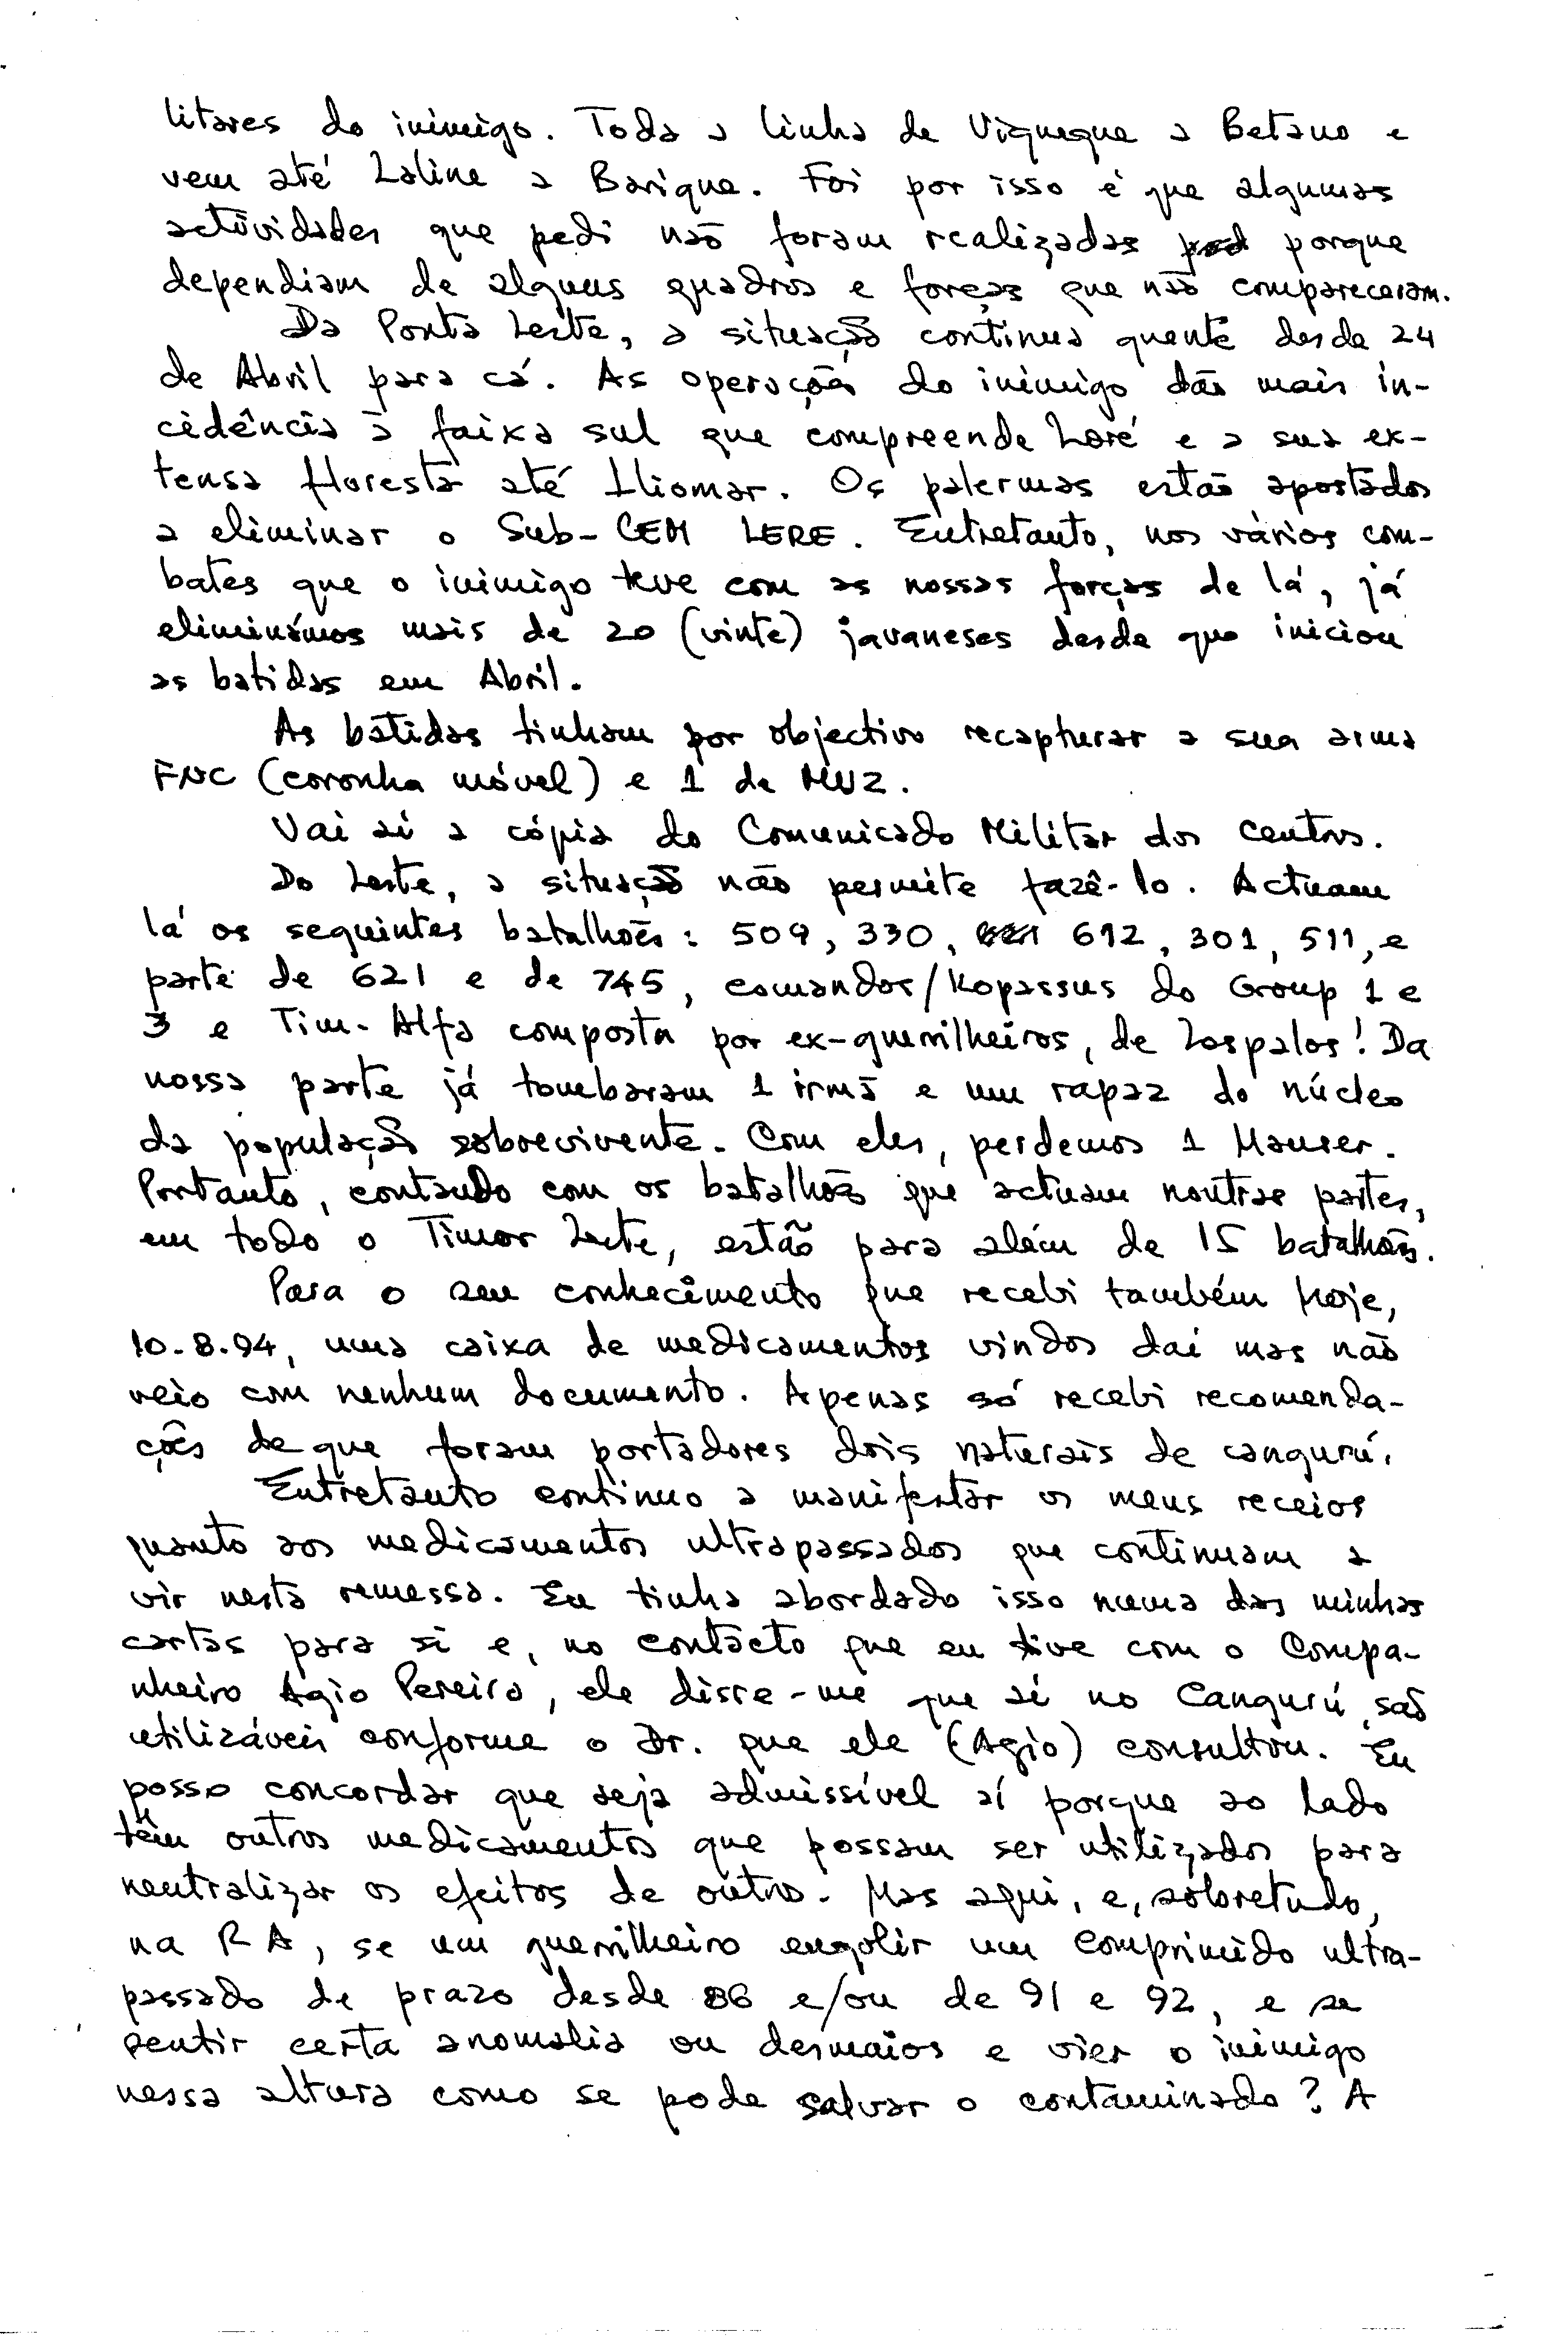 litares do inimigo. Toda a linha de Viqueque a Betano e
vem até Laline a Barique. Foi por isso é que algumas
actividades que pedi não foram realizadas porque
dependiam de alguns quadros e forças que não compareceram.
Da Ponta Leste, a situação continua quente desde 24
de Abril para cá. As operações do inimigo dão mais in-
cidência à faixa sul que compreende Loré e a sua ex-
tensa floresta até Iliomar. Os palermas estão apostados
a eliminar o Sub-CEM LERE. Entretanto, nos vários com-
bates que o inimigo teve com as nossas forças de lá, já
eliminámos mais de 20 (vinte) javaneses desde que iniciou
as batidas em Abril.
As batidas tinham por objectivo recapturar a sua arma
FNC (coronha móvel) e 1 de MUZ.
Vai aí a cópia do Comunicado Militar dos Centros.
Do Leste, a situação não permite fazê-lo. Actuam
lá os seguintes batalhões: 509, 330, 612, 301, 511, e
parte de 621 e de 745, comandos/Kopassus do Group 1 e
3 e Tim-Alfa composta por ex-guerrilheiros, de Lospalos! Da
nossa parte já tombaram 1 irmã e um rapaz do núcleo
da população sobrevivente. Com eles, perdemos 1 Mauser.
Portanto, contando com os batalhões que actuam noutras partes,
em todo o Timor Leste, estão para além de 15 batalhões.
Para o seu conhecimento que recebi também hoje,
10.8.94, uma caixa de medicamentos vindos daí mas não
veio com nenhum documento. Apenas só recebi recomenda-
ções de que foram portadores dois naturais de cangurú.
Entretanto continuo a manifestar os meus receios
quanto aos medicamentos ultrapassados que continuam a
vir nesta remessa. Eu tinha abordado isso numa das minhas
cartas para si e, no contacto que eu tive com o Compa-
nheiro Agio Pereira, ele disse-me que aí no Cangurú, são
utilizáveis conforme o Dr. que ele (Agio) consultou. Eu
posso concordar que seja admissível aí porque ao lado
têm outros medicamentos que possam ser utilizados para
neutralizar os efeitos de outros. Mas aqui, e, sobretudo,
na RA, se um guerrilheiro engolir um comprimido ultra-
passado de prazo desde 86 e/ou de 91 e 92, e se
sentir certa anomalia ou desmaios e vier o inimigo
nessa altura como se pode salvar o contaminado? A